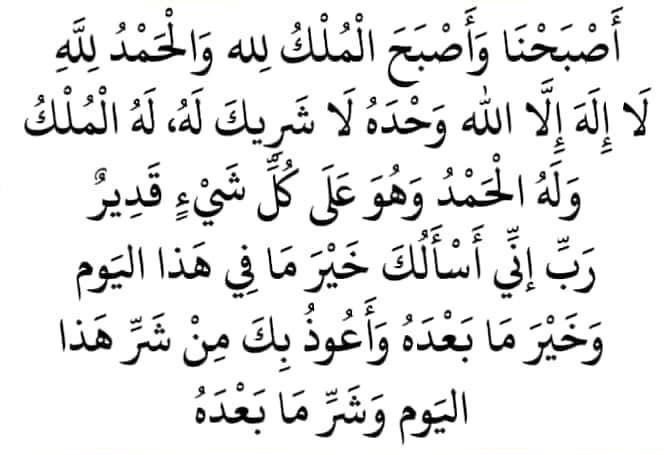 أَصْبَحْنَا وَأَصْبَحَ الْمُلْكُ لِله وَالْحَمْدُ لِلَّهِ
لَا إِلَهَ إِلَّا الله وَحْدَهُ لَا شَرِيكَ لَهُ، لَهُ الْمُلْكُ
وَلَهُ الْحَمْدُ وَهُوَ عَلَى كُلِّ شَيْءٍ قَدِيرٌ
رَبِّ إنِّي أَسْأَلُكَ خَيْرَ مَا فِي هَذا اليَوم
وَخَيْرَ مَا بَعْدَهُ وَأَعُوذُ بِكَ مِنْ شَرِّ هَذا
اليَوم وَشَرِّ مَا بَعْدَهُ